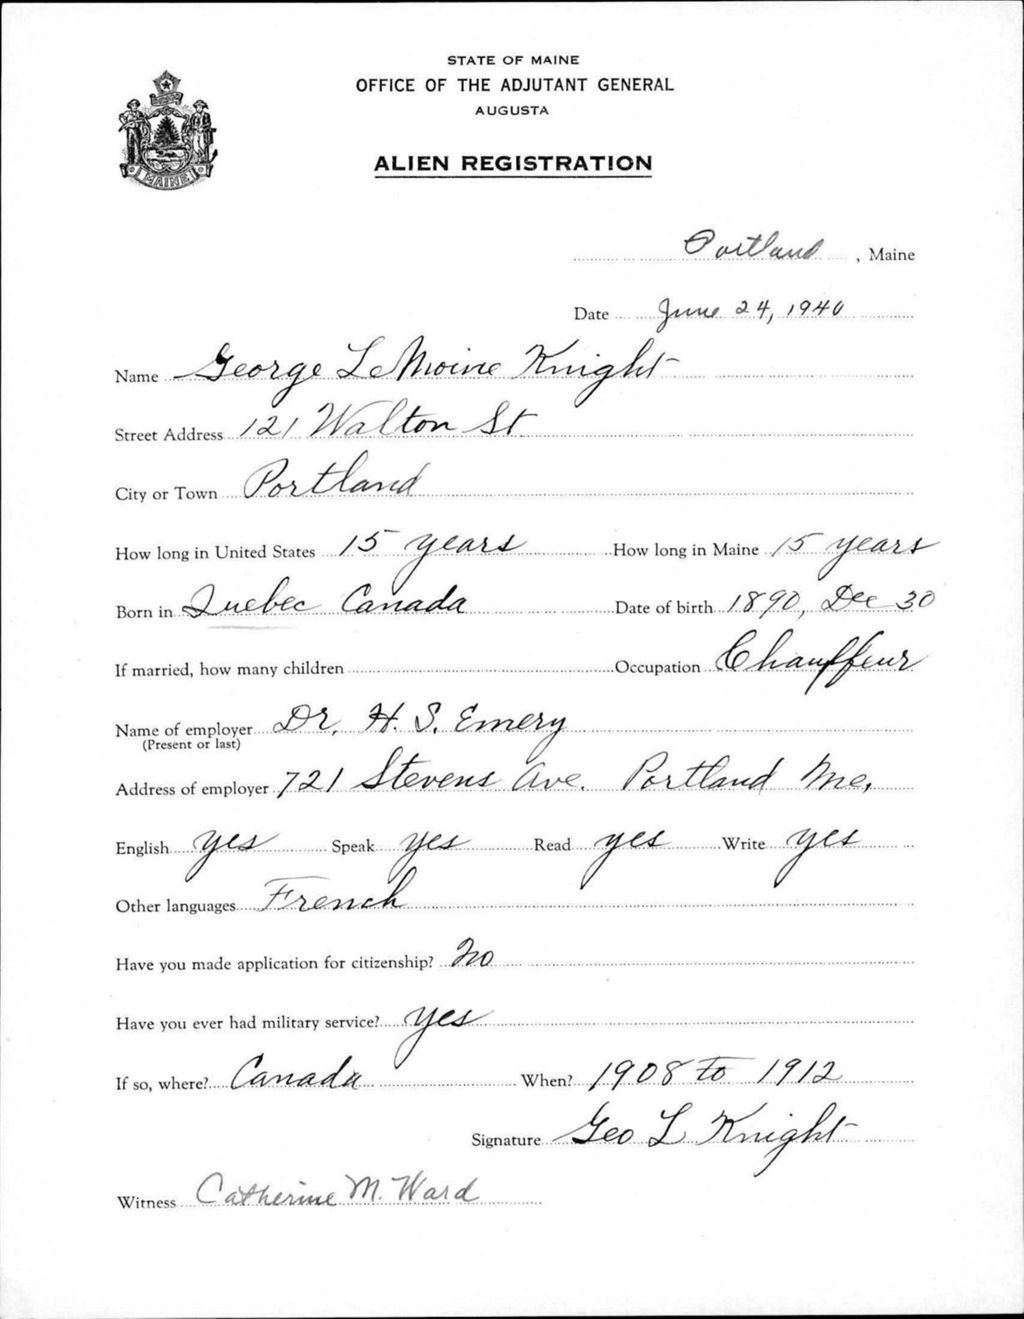 STATE OF MAINE
OFFICE OF THE ADJUTANT GENERAL
AUGUSTA
ALIEN REGISTRATION
MAINE
Portland, Maine
Date June 24, 1940
Name George LeMoine Knight
Street Address 121 Walton St
City or Town Portland
How long in United States 15 years How long in Maine 15 years
Born in Quebec Canada Date of birth 1890, Dec 30
If married, how many children Occupation Chauffeur
Name of employer Dr. H. S. Emery
(Present or last)
Address of employer 721 Stevens Ave. Portland Me,
English yes Speak yes Read yes Write yes
Other languages French
Have you made application for citizenship? No
Have you ever had military service? Yes
If so, where? Canada When? 1908 to 1912
Signature Geo L Knight
Witness Catherine M. Ward